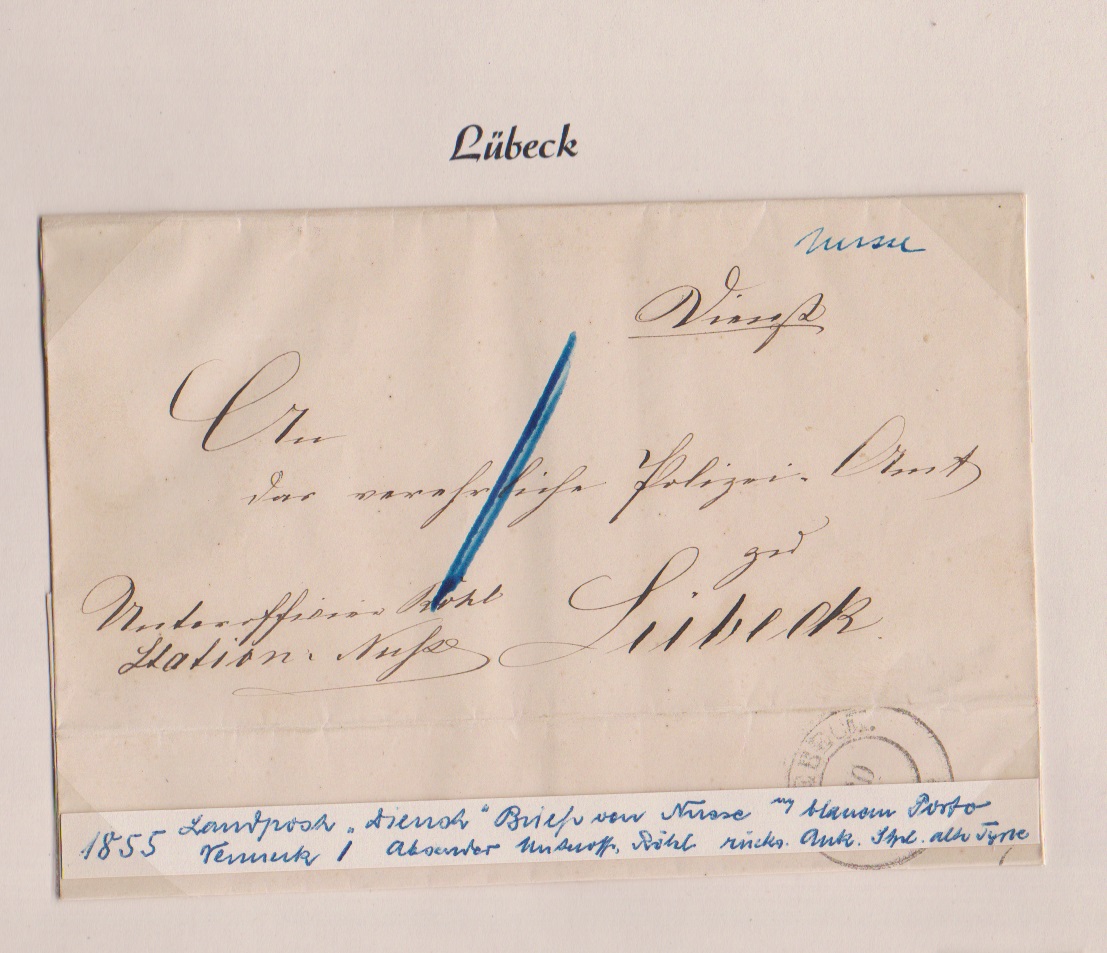 Lübeck
Nusse
Dienst
An
das verehrliche Polizei-Amt
zu
Lübeck.
Unterofficier Röhl
Station. Nusse
BECK.
1855 Landpost „Dienst“ Brief von Nusse m/ blauem Porto
Vermerk 1 Absender Unteroff. Röhl rücks. Ank. Stpl. alte Type